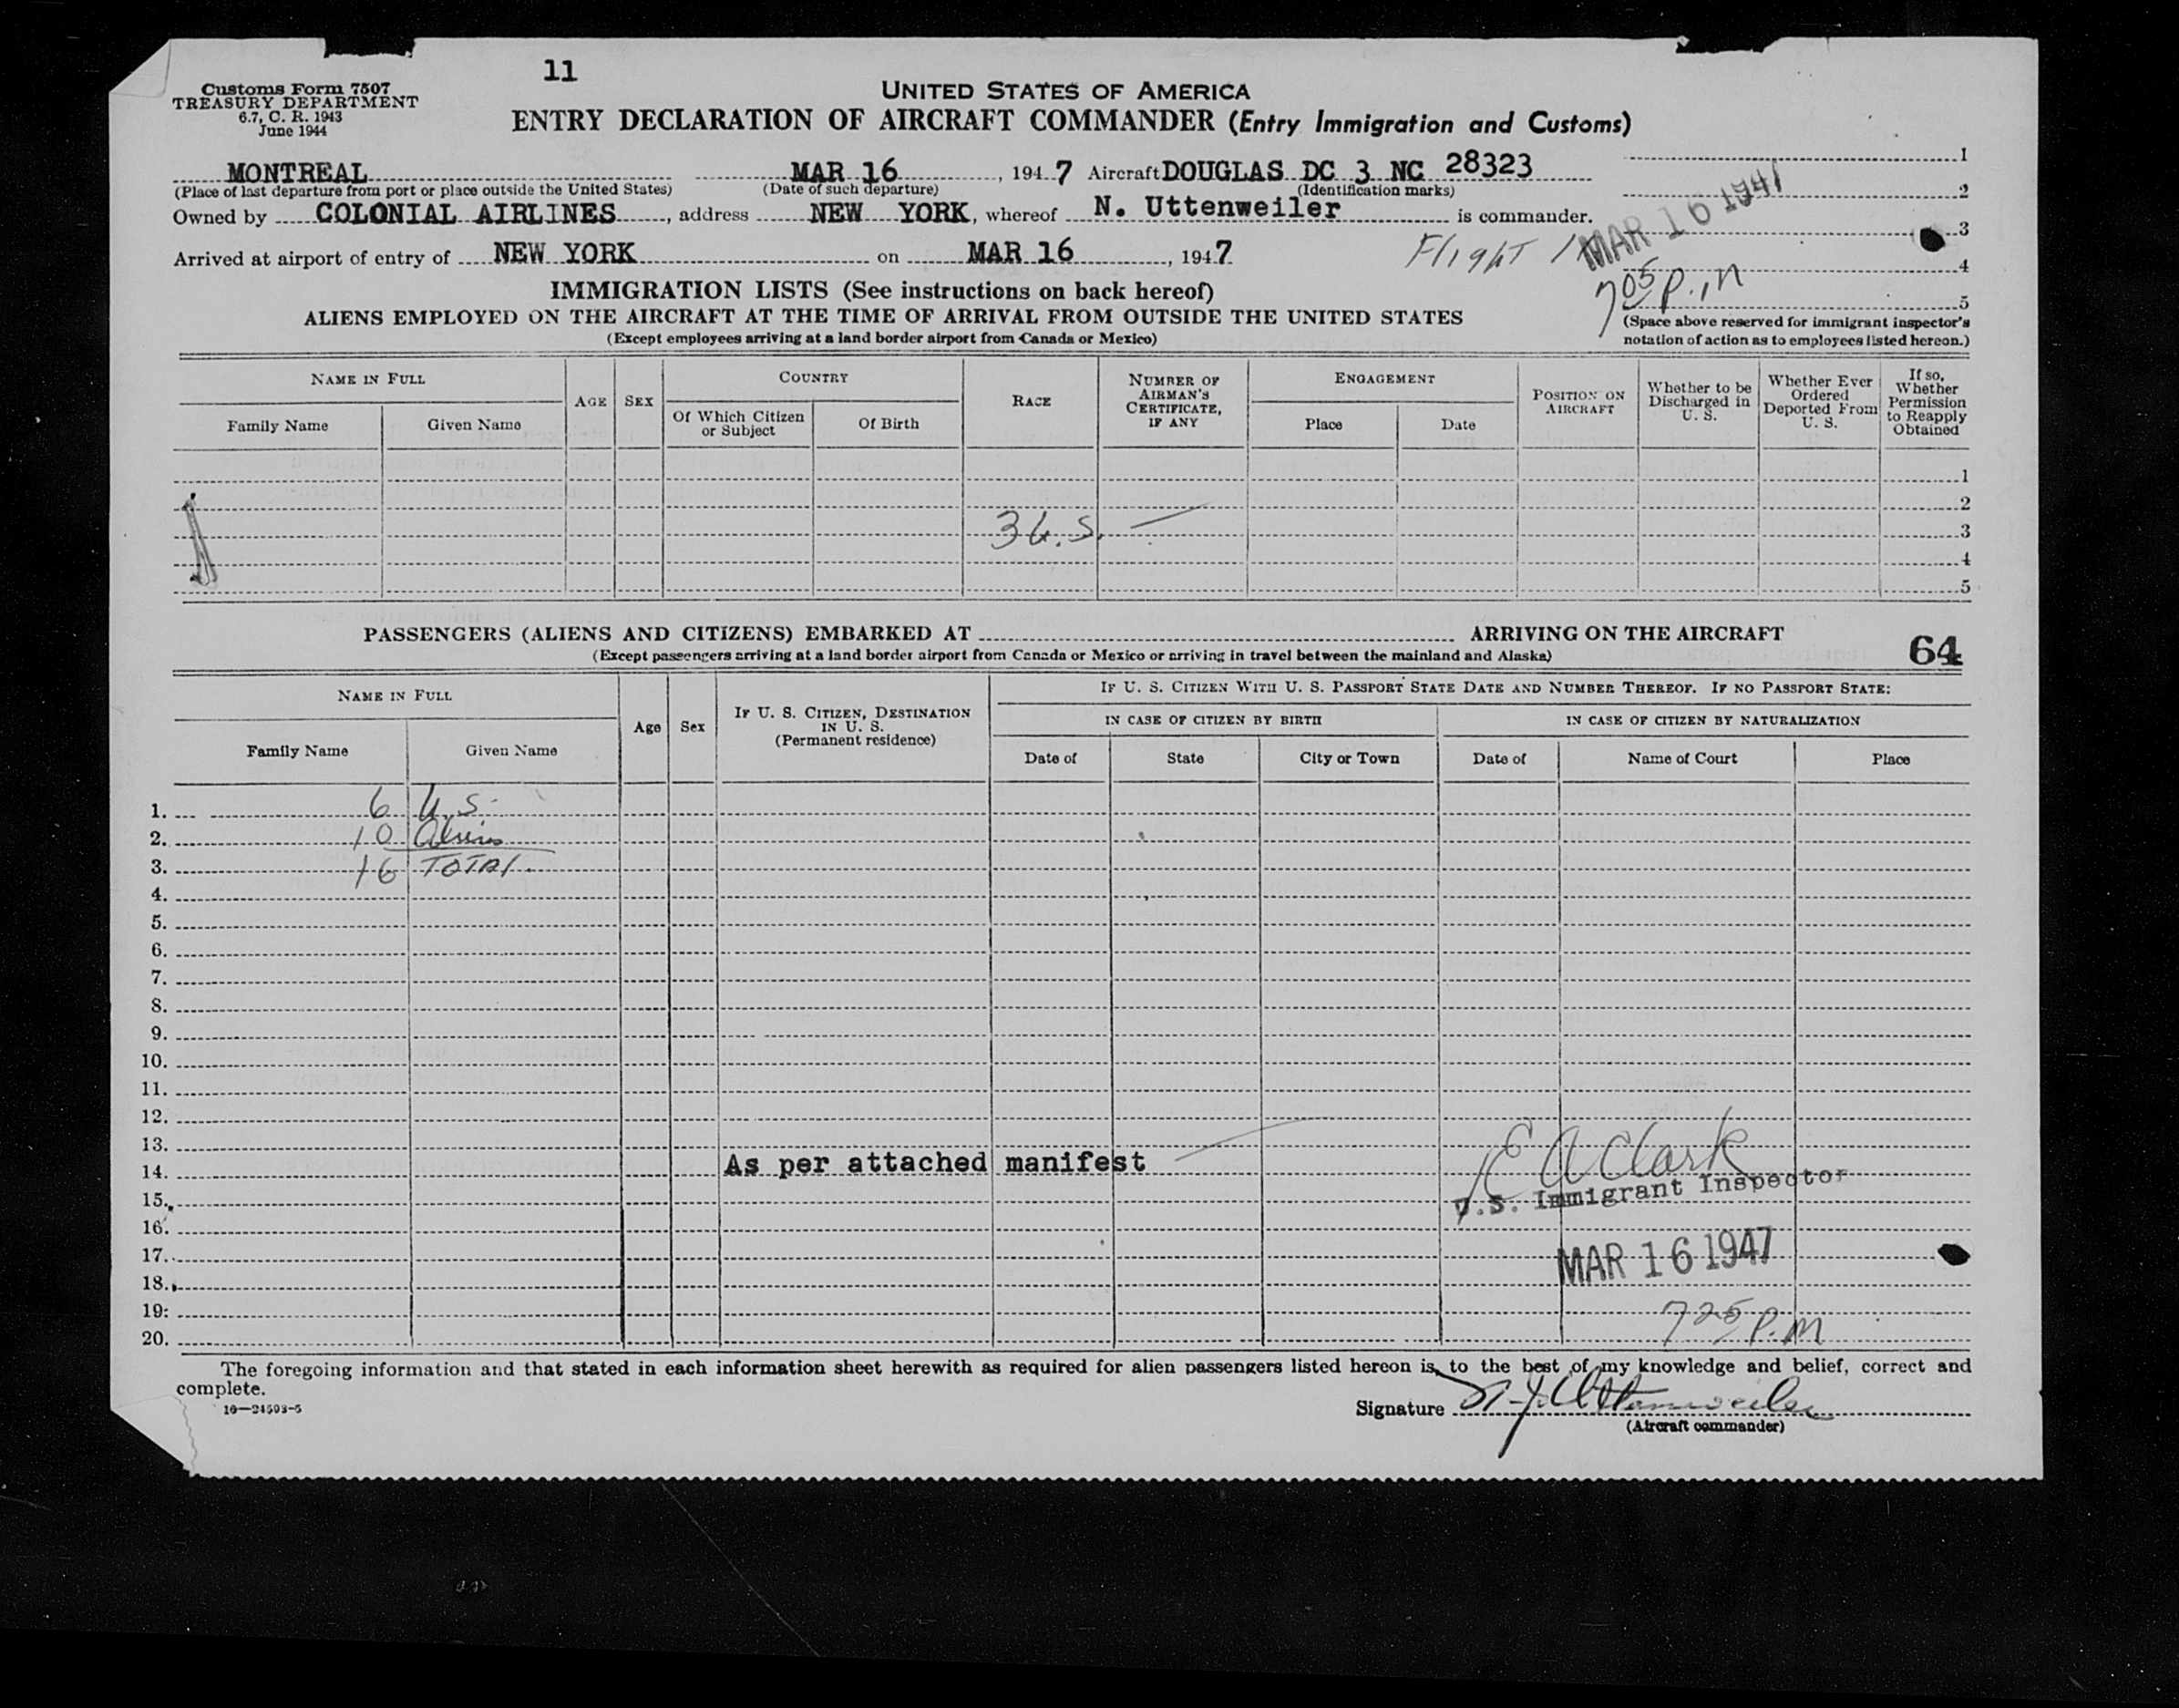 11
Customs Form 7507
TREASURY DEPARTMENT
6.7, C. R. 1943
June 1944
UNITED STATES OF AMERICA
ENTRY DECLARATION OF AIRCRAFT COMMANDER (Entry Immigration and Customs)
MONTREAL MAR 16, 1947 Aircraft DOUGLAS DC 3 NC 28323
(Place of last departure from port or place outside the United States) (Date of such departure) (Identification marks)
Owned by COLONIAL AIRLINES, address NEW YORK, whereof N. Uttenweiler is commander.
Arrived at airport of entry of NEW YORK on MAR 16, 1947
Flight
MAR 16 1947
705 p.m
1
2
3
4
5
(Space above reserved for immigrant inspector's
notation of action as to employees listed hereon.)
IMMIGRATION LISTS (See instructions on back hereof)
ALIENS EMPLOYED ON THE AIRCRAFT AT THE TIME OF ARRIVAL FROM OUTSIDE THE UNITED STATES
(Except employees arriving at a land border airport from Canada or Mexico)
NAME IN FULL
Family Name
Given Name
AGE
SEX
COUNTRY
Of Which Citizen
or Subject
Of Birth
RACE
NUMBER OF
AIRMAN'S
CERTIFICATE,
IF ANY
ENGAGEMENT
Place
Date
POSITION ON
AIRCRAFT
Whether to be
Discharged in
U. S.
Whether Ever
Ordered
Deported From
U. S.
If so,
Whether
Permission
to Reapply
Obtained
1
2
3 U.S. 3
4
5
PASSENGERS (ALIENS AND CITIZENS) EMBARKED AT ARRIVING ON THE AIRCRAFT
(Except passengers arriving at a land border airport from Canada or Mexico or arriving in travel between the mainland and Alaska)
64
NAME IN FULL
Family Name
Given Name
Age
Sex
IF U. S. CITIZEN, DESTINATION
IN U. S.
(Permanent residence)
IF U. S. CITIZEN WITH U. S. PASSPORT STATE DATE AND NUMBER THEREOF. IF NO PASSPORT STATE:
IN CASE OF CITIZEN BY BIRTH
IN CASE OF CITIZEN BY NATURALIZATION
Date of
State
City or Town
Date of
Name of Court
Place
1. 6 U.S.
2. 10 Aliens
3. 16 TOTAL.
4.
5.
6.
7.
8.
9.
10.
11.
12.
13.
14. As per attached manifest
E A Clark
15. U.S. Immigrant Inspector
16.
17. MAR 16 1947
18.
19.
20. 725 P.M
The foregoing information and that stated in each information sheet herewith as required for alien passengers listed hereon is, to the best of my knowledge and belief, correct and
complete.
16—24593-5
Signature N J Uttenweiler
(Aircraft commander)